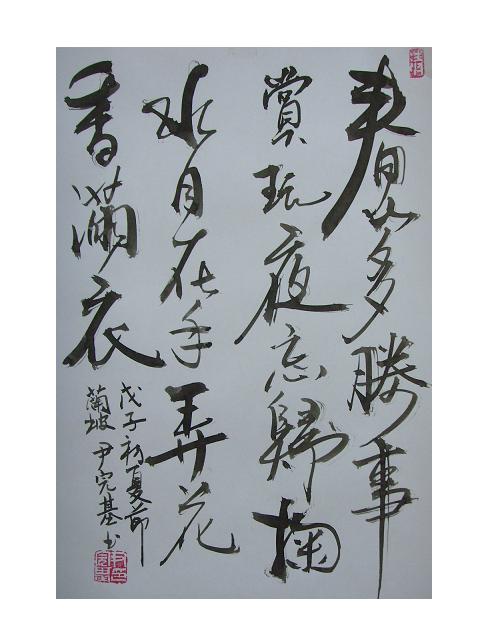 春山多勝事
賞玩夜忘歸掬
水月在手弄花
香滿衣
戊子初夏節
蘭坡 尹完基书